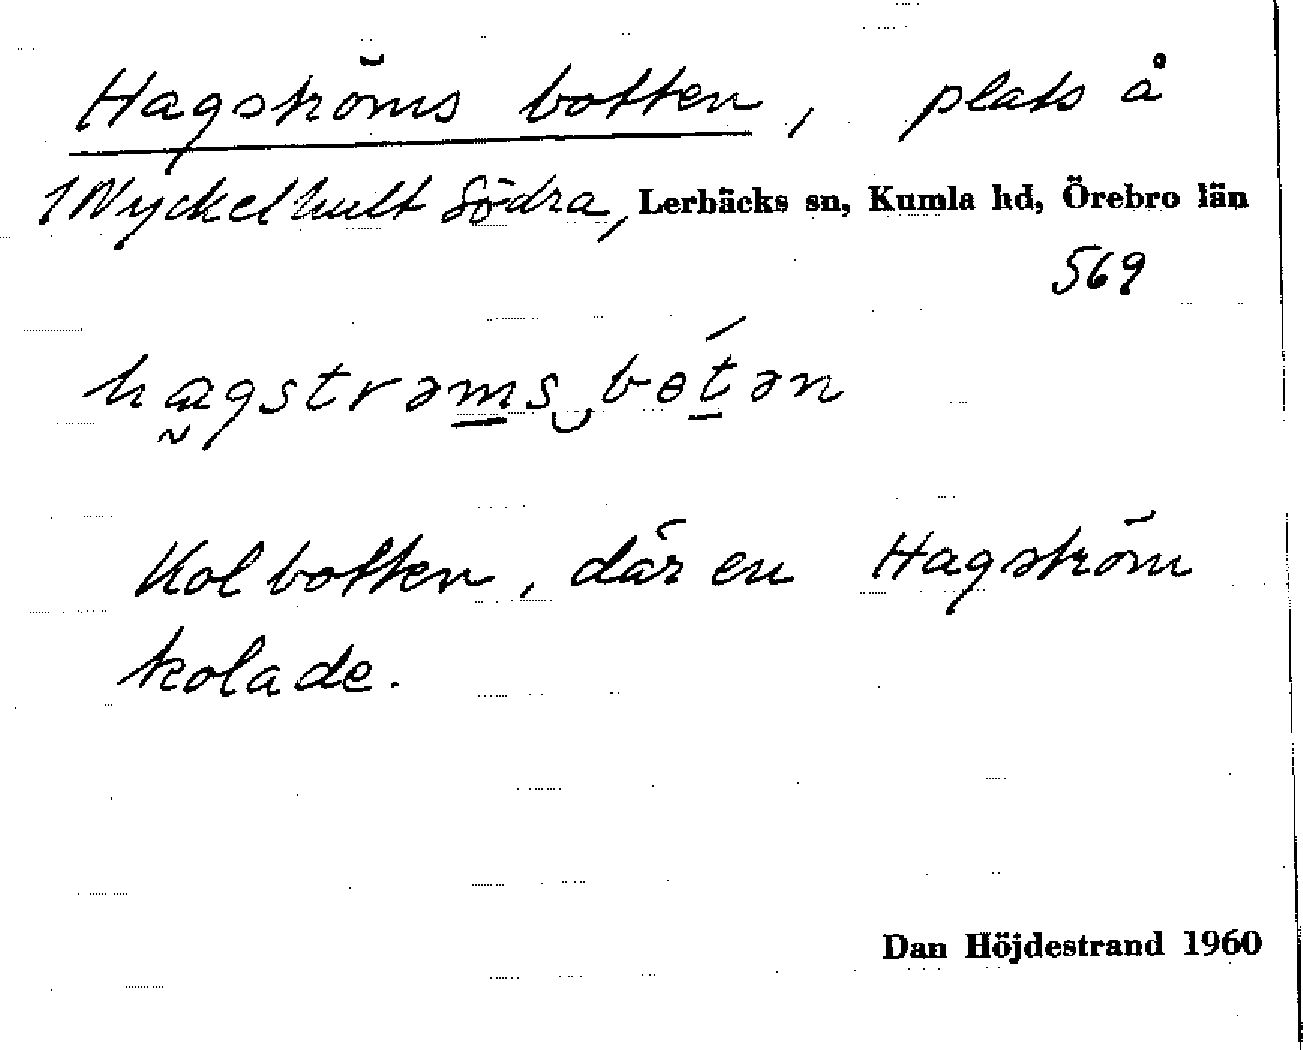 Hagströms botten, plats å
1 Nyckelhult Södra, Lerbäcks sn, Kumla hd, Örebro län
569
hagstrəms botən
Kolbotten, där en Hagström
kolade.
Dan Höjdestrand 1960